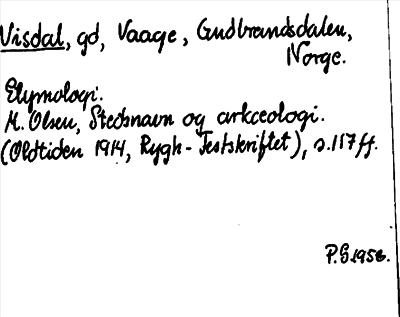 Visdal, gd, Vaage, Gudbrandsdalen,
Norge.
Etymologi.
M. Olsen, Stedsnavn og arkæologi.
(Oldtiden 1914, Rygh-Festskriftet), s.117ff.
P.G.1958.